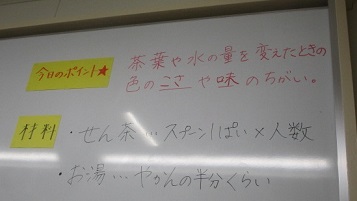 今日のポイント★ 茶葉や水の量を変えたときの
色のこさや味のちがい。
材料 ・せん茶…スプーン1ぱい×人数
・お湯…やかんの半分くらい